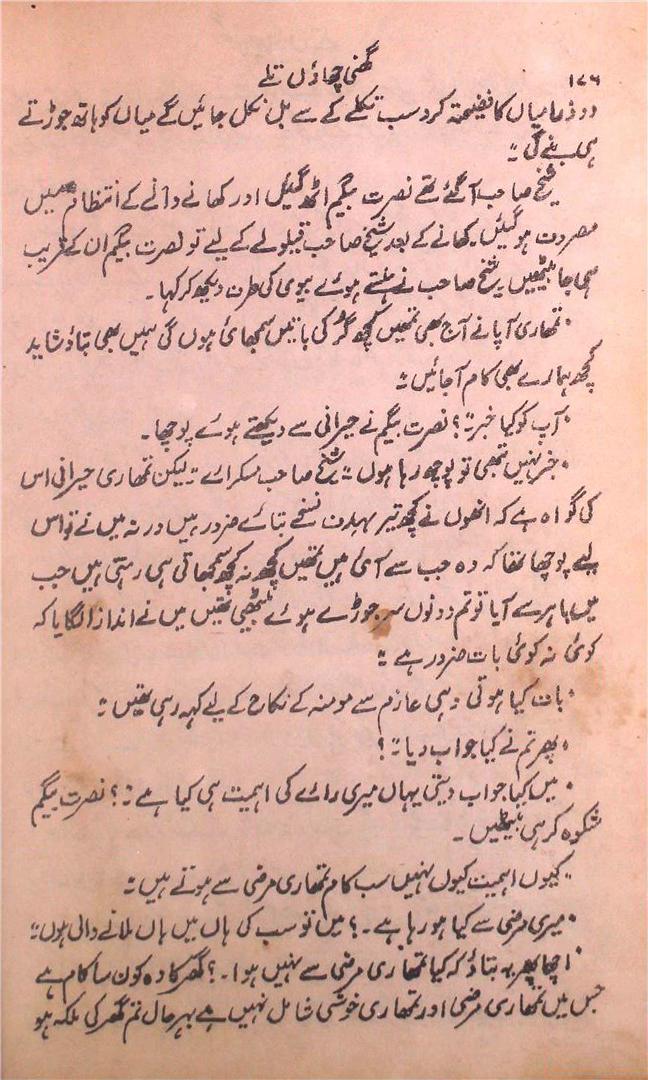 ۱۷۶
گھنی چھاؤں تلے
دو ذرا میاں کا فضیحتہ کرو سب تکلے کے سے بل نکل جائیں گے میاں کو ہاتھ جوڑتے
ہی بنے گی"
شیخ صاحب آگئے تھے نصرت بیگم اٹھ گئیں اور کھانے دانے کے انتظام میں
مصروف ہو گئیں۔ کھانے کے بعد شیخ صاحب قیلولے کے لیے تو نصرت بیگم ان کے قریب
ہی جا بیٹھیں۔ شیخ صاحب نے ہنستے ہوئے بیوی کی طرف دیکھ کر کہا۔
"تمھاری آپا نے آج بھی تمھیں کچھ گُر کی باتیں سمجھائی ہوں گی ہمیں بھی بتاؤ شاید
کچھ ہمارے بھی کام آجائیں"
"آپ کو کیا خبر"؟ نصرت بیگم نے حیرانی سے دیکھتے ہوئے پوچھا۔
"خبر نہیں تبھی تو پوچھ رہا ہوں" شیخ صاحب مسکرائے "لیکن تمھاری حیرانی اس
کی گواہ ہے کہ انھوں نے کچھ تیر بہدف نسخے بتائے ضرور ہیں ورنہ میں نے تو اس
لیے پوچھا تھا کہ وہ جب سے آئی ہیں تمھیں کچھ نہ کچھ سمجھاتی ہی رہتی ہیں جب
میں باہر سے آیا تو تم دونوں سر جوڑے ہوئے بیٹھی تھیں میں نے اندازا لگایا کہ
کوئی نہ کوئی بات ضرور ہے"
"بات کیا ہوتی وہی عازم سے مومنہ کے نکاح کے لیے کہہ رہی تھیں"
"پھر تم نے کیا جواب دیا"؟
"میں کیا جواب دیتی یہاں میری رائے کی اہمیت ہی کیا ہے"؟ نصرت بیگم
شکوہ کر ہی بیٹھیں۔
"کیوں اہمیت کیوں نہیں سب کام تمھاری مرضی سے ہوتے ہیں"
"میری مرضی سے کیا ہو رہا ہے۔؟ میں تو سب کی ہاں میں ہاں ملانے والی ہوں"
"اچھا پھر یہ بتاؤ کہ کیا تمھاری مرضی سے نہیں ہوا۔؟ گھر کا وہ کون سا کام ہے
جس میں تمھاری مرضی اور تمھاری خوشی شامل نہیں ہے بہرحال تم گھر کی ملکہ ہو